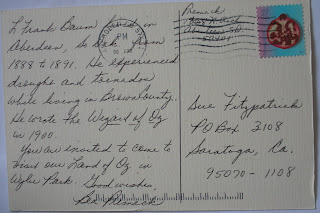 L Frank Baum lived in
Aberdeen, So. Dak. from
1888 to 1891. He experienced
drought and tornados
while living in Brown County.
He wrote The Wizard of Oz
in 1900.
You are invited to come to
visit our Land of Oz in
Wylie Park. Good wishes,
PM
Sue Fitzpatrick
PO Box 3108
Saratoga, Ca.
95070-1108